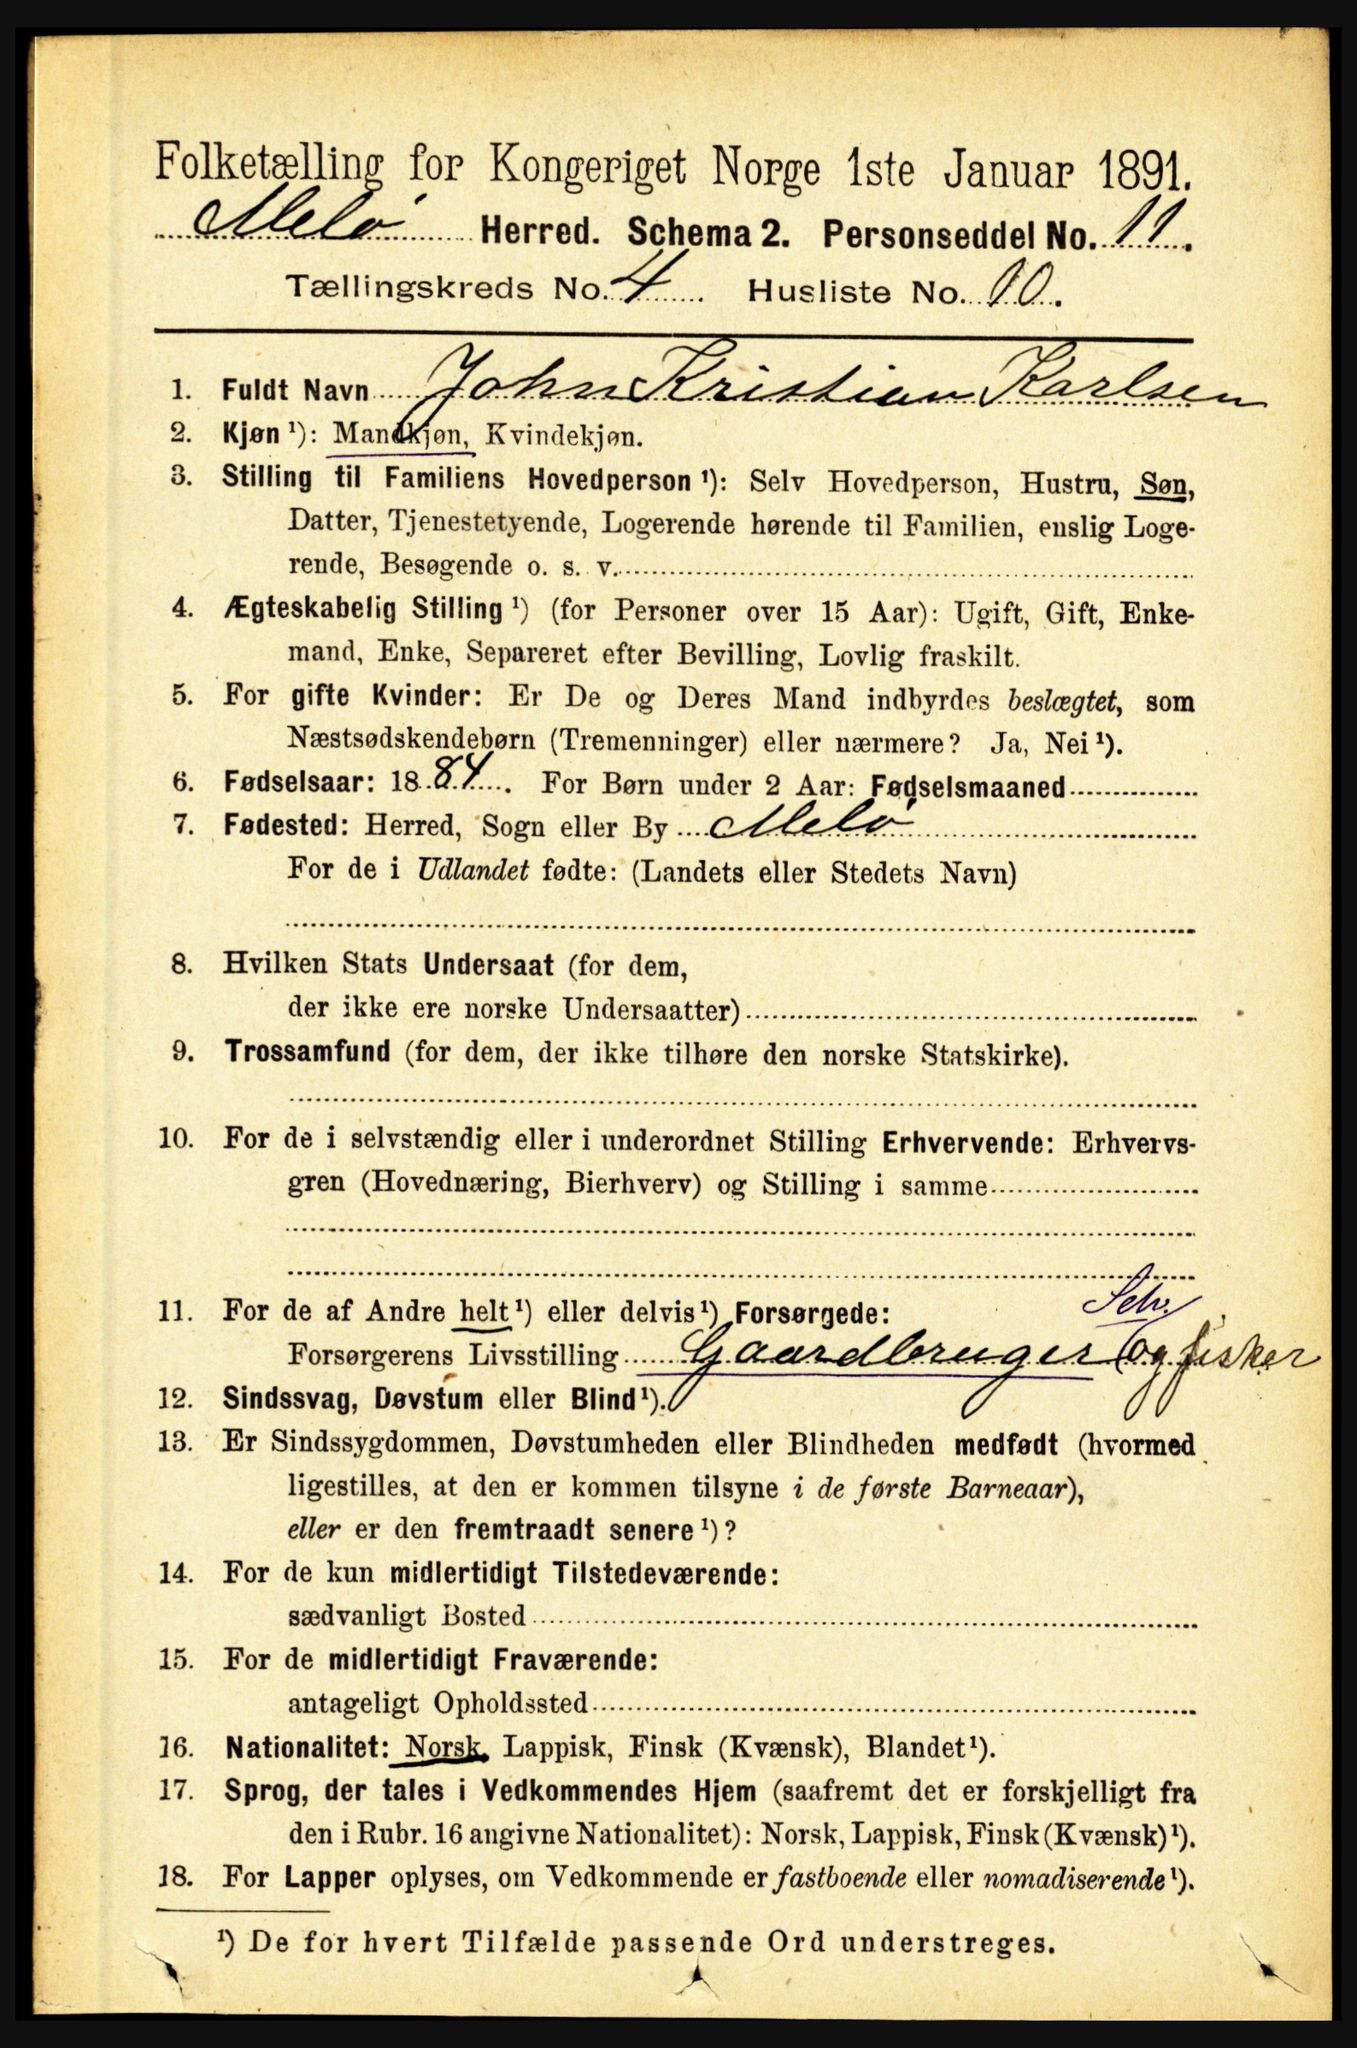 Folketælling for Kongeriget Norge 1ste Januar 1891.
Melö Herred. Schema 2. Personseddel No. 11.
Tællingskreds No. 4 Husliste No. 10.
1. Fuldt Navn John Kristian Karlsen
2. Kjøn ¹): Mandkjøn, Kvindekjøn.
3. Stilling til Familiens Hovedperson ¹): Selv Hovedperson, Hustru, Søn,
Datter, Tjenestetyende, Logerende hørende til Familien, enslig Loge-
rende, Besøgende o. s. v.
4. Ægteskabelig Stilling ¹) (for Personer over 15 Aar): Ugift, Gift, Enke-
mand, Enke, Separeret efter Bevilling, Lovlig fraskilt.
5. For gifte Kvinder: Er De og Deres Mand indbyrdes beslægtet, som
Næstsødskendebørn (Tremenninger) eller nærmere? Ja, Nei ¹).
6. Fødselsaar: 1884. For Børn under 2 Aar: Fødselsmaaned
7. Fødested: Herred, Sogn eller By Melö
For de i Udlandet fødte: (Landets eller Stedets Navn)
8. Hvilken Stats Undersaat (for dem,
der ikke ere norske Undersaatter)
9. Trossamfund (for dem, der ikke tilhøre den norske Statskirke).
10. For de i selvstændig eller i underordnet Stilling Erhvervende: Erhvervs-
gren (Hovednæring, Bierhverv) og Stilling i samme
Selv.
11. For de af Andre helt ¹) eller delvis ¹) Forsørgede:
Forsørgerens Livsstilling Gaardbruger og fisker
12. Sindssvag, Døvstum eller Blind ¹).
13. Er Sindssygdommen, Døvstumheden eller Blindheden medfødt (hvormed
ligestilles, at den er kommen tilsyne i de første Barneaar),
eller er den fremtraadt senere ¹)?
14. For de kun midlertidigt Tilstedeværende:
sædvanligt Bosted
15. For de midlertidigt Fraværende:
antageligt Opholdssted
16. Nationalitet: Norsk, Lappisk, Finsk (Kvænsk), Blandet ¹).
17. Sprog, der tales i Vedkommendes Hjem (saafremt det er forskjelligt fra
den i Rubr. 16 angivne Nationalitet): Norsk, Lappisk, Finsk (Kvænsk) ¹).
18. For Lapper oplyses, om Vedkommende er fastboende eller nomadiserende ¹).
¹) De for hvert Tilfælde passende Ord understreges.